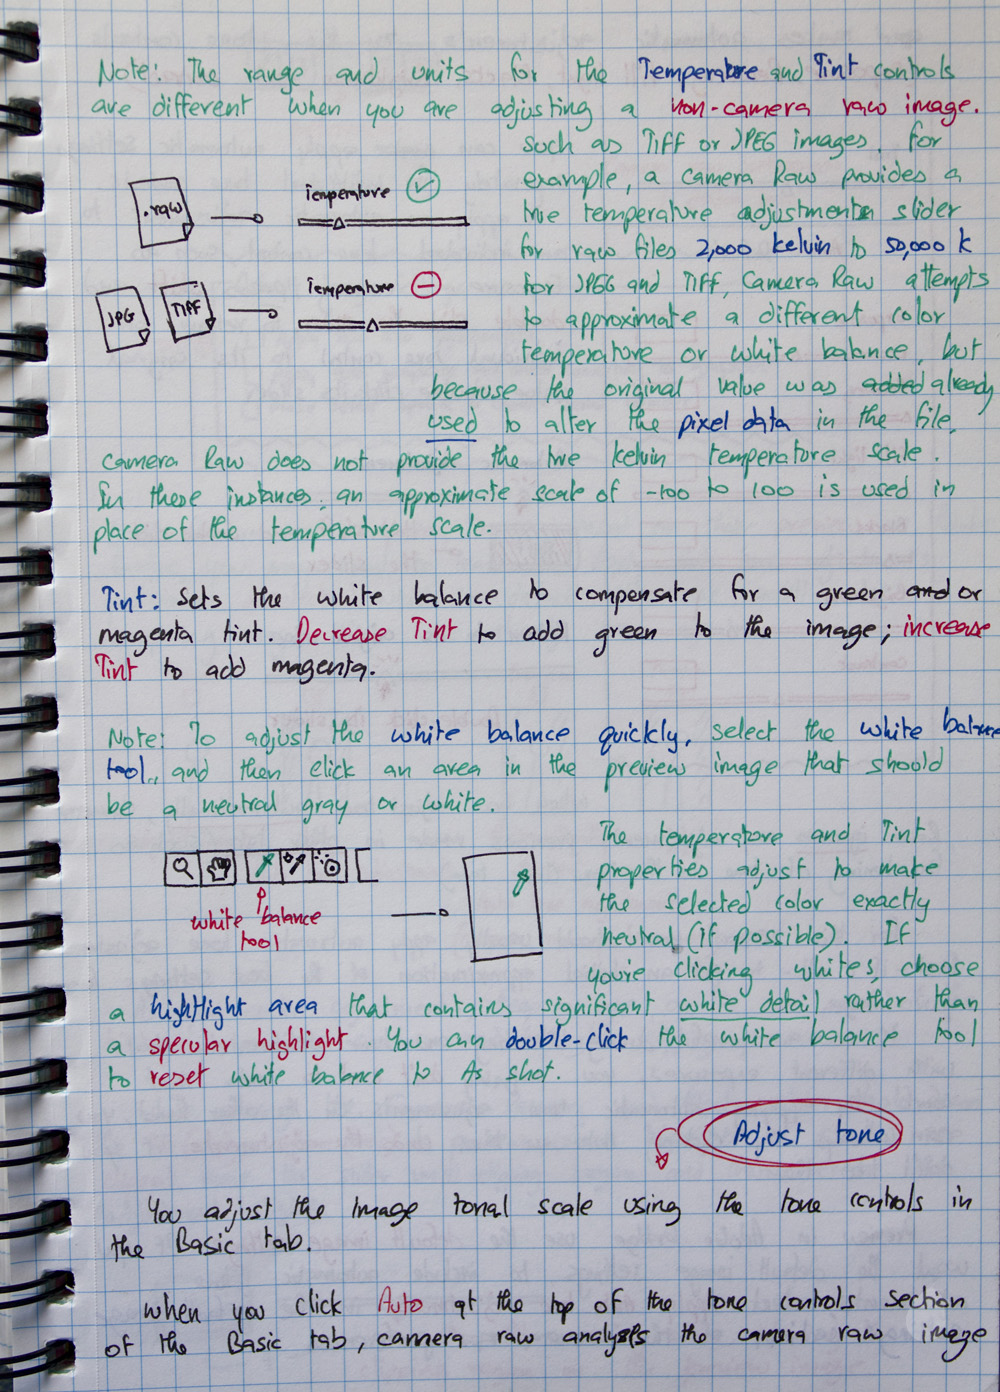 Note: The range and units for the Temperature and Tint controls
are different when you are adjusting a non-camera raw image.
such as TIFF or JPEG images. For
example, a camera Raw provides a
true temperature adjustments slider
for raw files 2,000 kelvin to 50,000 k
.raw
Temperature
for JPGG and TIFF, Camera Raw attempts
to approximate a different color
temperature or white balance, but
JPG
TIFF
Temperature
because the original value was added already
used to alter the pixel data in the file,
camera Raw does not provide the true kelvin temperature scale.
In these instances, an approximate scale of -100 to 100 is used in
place of the temperature scale.
Tint: Sets the white balance to compensate for a green and or
magenta tint. Decrease Tint to add green to the image; increase
Tint to add magenta.
Note: To adjust the white balance quickly, select the white balance
tool, and then click an area in the preview image that should
be a neutral gray or white.
white balance
tool
The temperature and Tint
properties adjust to make
the selected color exactly
neutral (if possible). If
you're clicking whites, choose
a highlight area that contains significant white detail rather than
a specular highlight. You can double-click the white balance tool
to reset white balance to As shot.
Adjust tone
You adjust the Image tonal scale using the tone controls in
the Basic tab.
when you click Auto at the top of the tone controls section
of the Basic tab, camera raw analyses the camera raw image